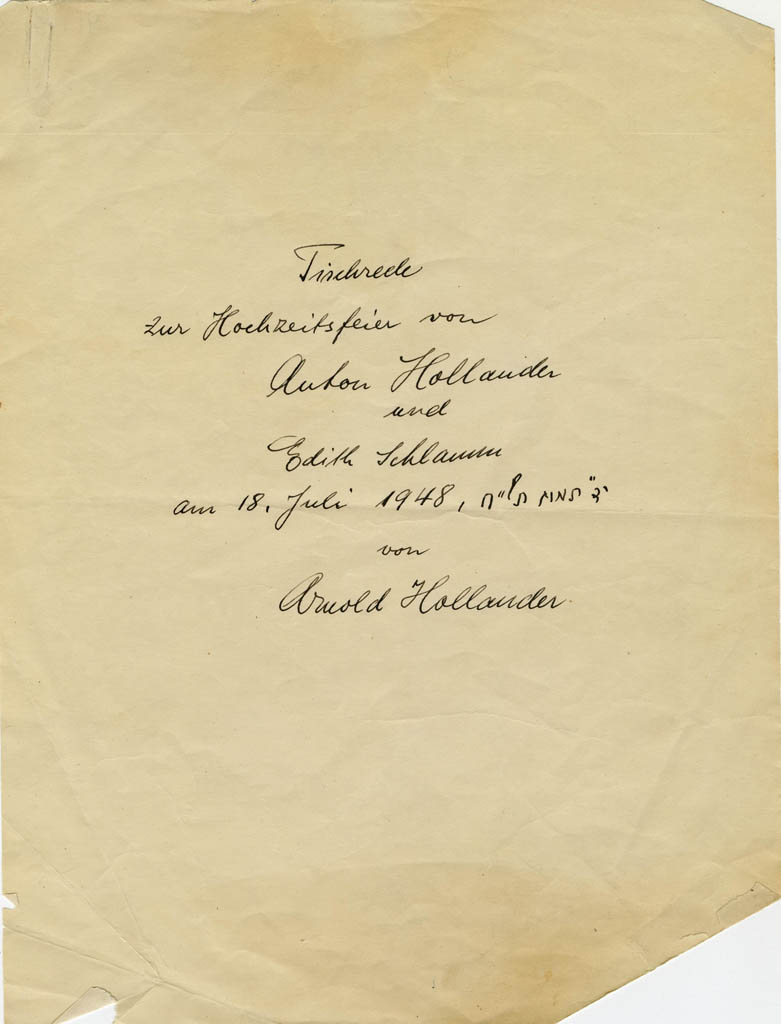 Tischrede
zur Hochzeitsfeier von
Anton Hollander
und
Edith Schlamm
am 18. Juli 1948, תמוז תש"ח
von
Arnold Hollander.